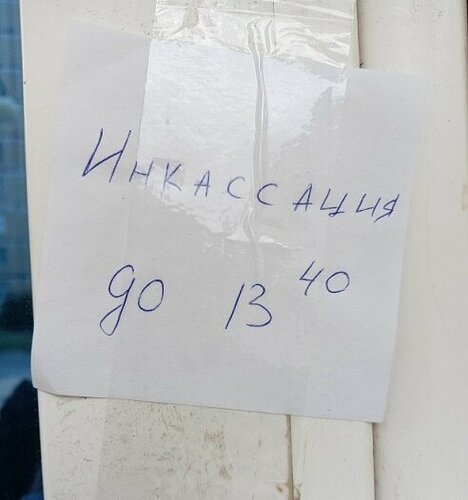 Инкассация
до 13 40